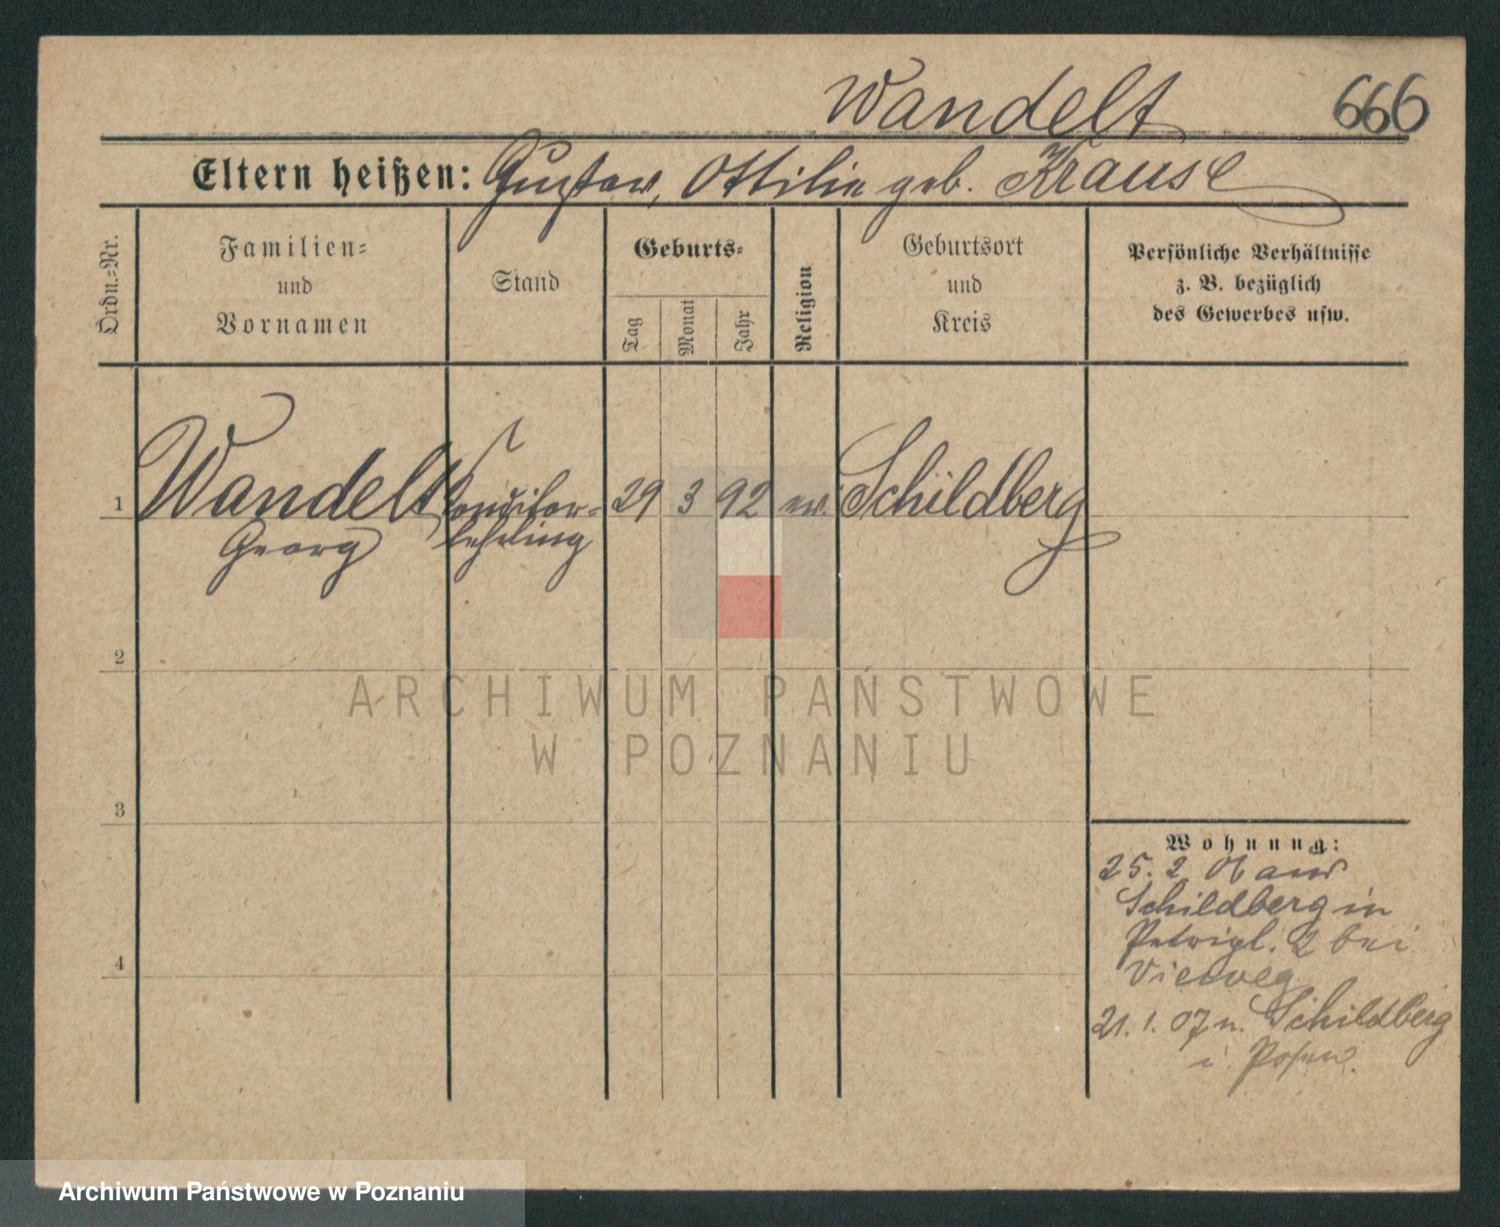 Wandelt 666
Eltern heißen: Gustav, Ottilie geb. Krause
Ordn.=Nr.
Familien=
und
Vornamen
Stand
Geburts=
Tag
Monat
Jahr
Religion
Geburtsort
und
Kreis
Persönliche Verhältnisse
z. B. bezüglich
des Gewerbes usw.
1 Wandelt Konditor= 29 3 92 ev. Schildberg
Georg lehrling
2
3
4
Wohnung:
25. 2. 06 aus
Schildberg in
Petrigl. 2 bei
Vieweg
21. 1. 07 n. Schildberg
i. Posen.
ARCHIWUM PAŃSTWOWE
W POZNANIU
Archiwum Państwowe w Poznaniu